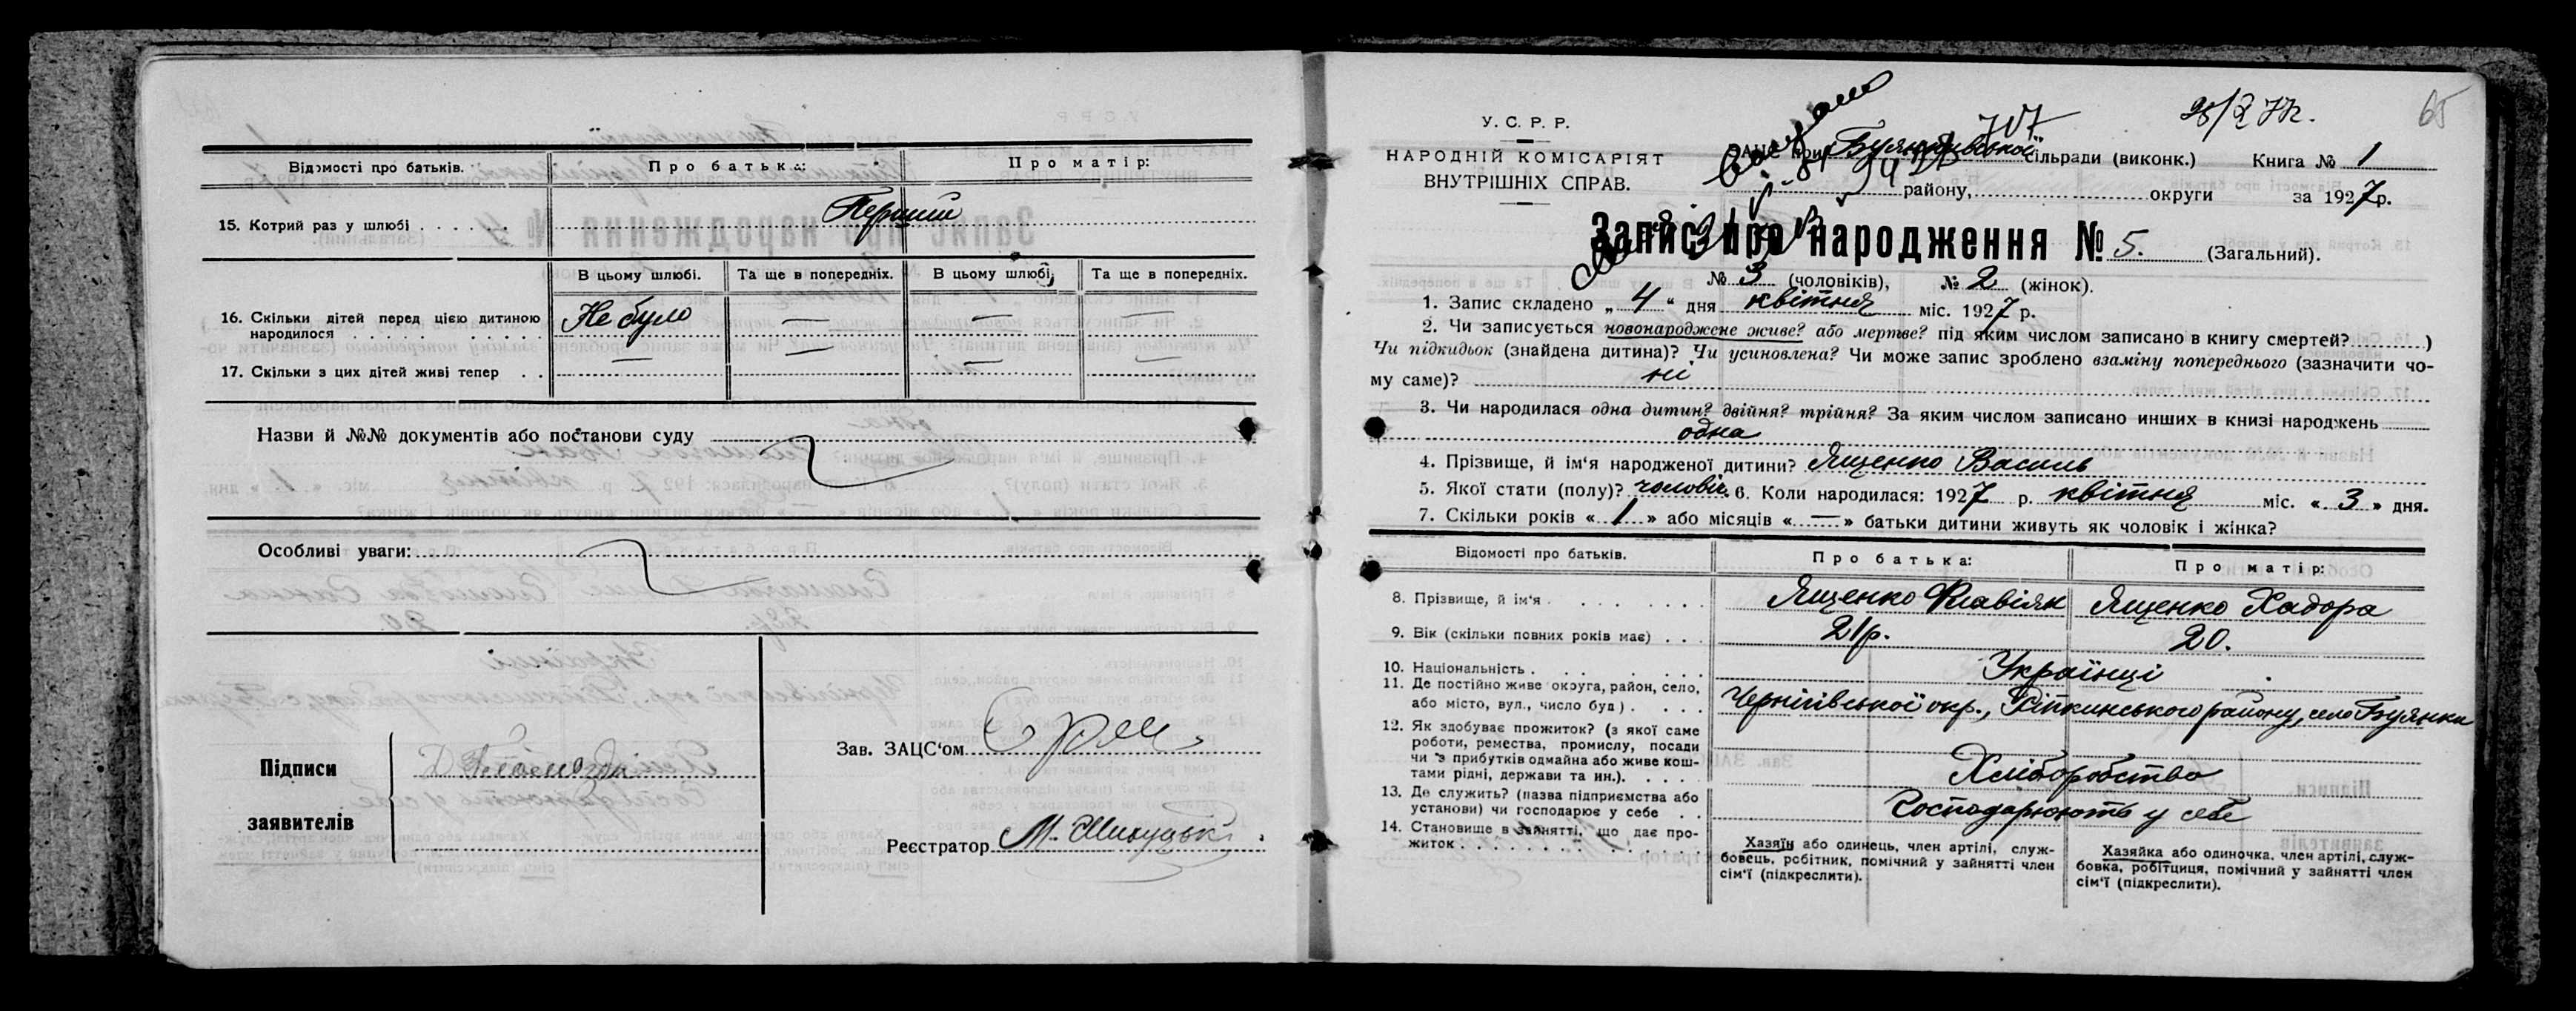 Відомості про батьків.
Про батька:
Про матір:
15. Котрий раз у шлюбі
Перший
В цьому шлюбі.
Та ще в попередніх.
В цьому шлюбі,
Та ще в попередніх.
16. Скільки дітей перед цією дитиною
народилося
Не було — — —
17. Скільки з цих дітей живі тепер
— — — —
Назви й №№ документів або постанови суду
Особливі уваги:
Підписи
заявителів
Зав. ЗАЦС'ом
Реєстратор М.
У. С. Р. Р.
НАРОДНІЙ КОМІСАРІЯТ
ВНУТРІШНІХ СПРАВ.
65
ЗАЦС при Буянківської сільради (виконк.) Книга № 1
району, округи за 1927 р.
Запис про народження № 5. (Загальний).
№ 3 (чоловіків), № 2 (жінок).
1. Запис складено „ 4 “ дня квітня міс. 1927 р.
2. Чи записується новонароджене живе? або мертве? під яким числом записано в книгу смертей? )
Чи підкидьок (знайдена дитина)? Чи усиновлена? Чи може запис зроблено взаміну попереднього (зазначити чо-
му саме)? ні
3. Чи народилася одна дитин? двійня? трійня? За яким числом записано инших в книзі народжень
одна
4. Прізвище, й ім'я народженої дитини? Ященко Василь
5. Якої стати (полу)? чоловіч. 6. Коли народилася: 1927 р. квітня міс. « 3 » дня.
7. Скільки років « 1 » або місяців « — » батьки дитини живуть як чоловік і жінка?
Відомості про батьків.
Про батька:
Про матір:
8. Прізвище, й ім'я
Ященко Флавіян
Ященко Хадора
9. Вік (скільки повних років має)
21р.
20.
10. Національність
Українці
11. Де постійно живе округа, район, село,
або місто, вул., число буд)
Чернігівської окр., Ріпкинського району, село Буянки
12. Як здобуває прожиток? (з якої саме
роботи, ремества, промислу, посади
чи з прибутків одмайна або живе кош-
тами рідні, держави та ин.).
Хліборобство
13. Де служить? (назва підприємства або
установи) чи господарює у себе
Господарюють у себе
14. Становище в зайнятті, що дає про-
житок
Хазяїн або одинець, член артілі, служ-
бовець, робітник, помічний у зайнятті член
сім'ї (підкреслити).
Хазяйка або одиночка, член артілі, служ-
бовка, робітциця, помічний у зайнятті член
сім'ї (підкреслити).